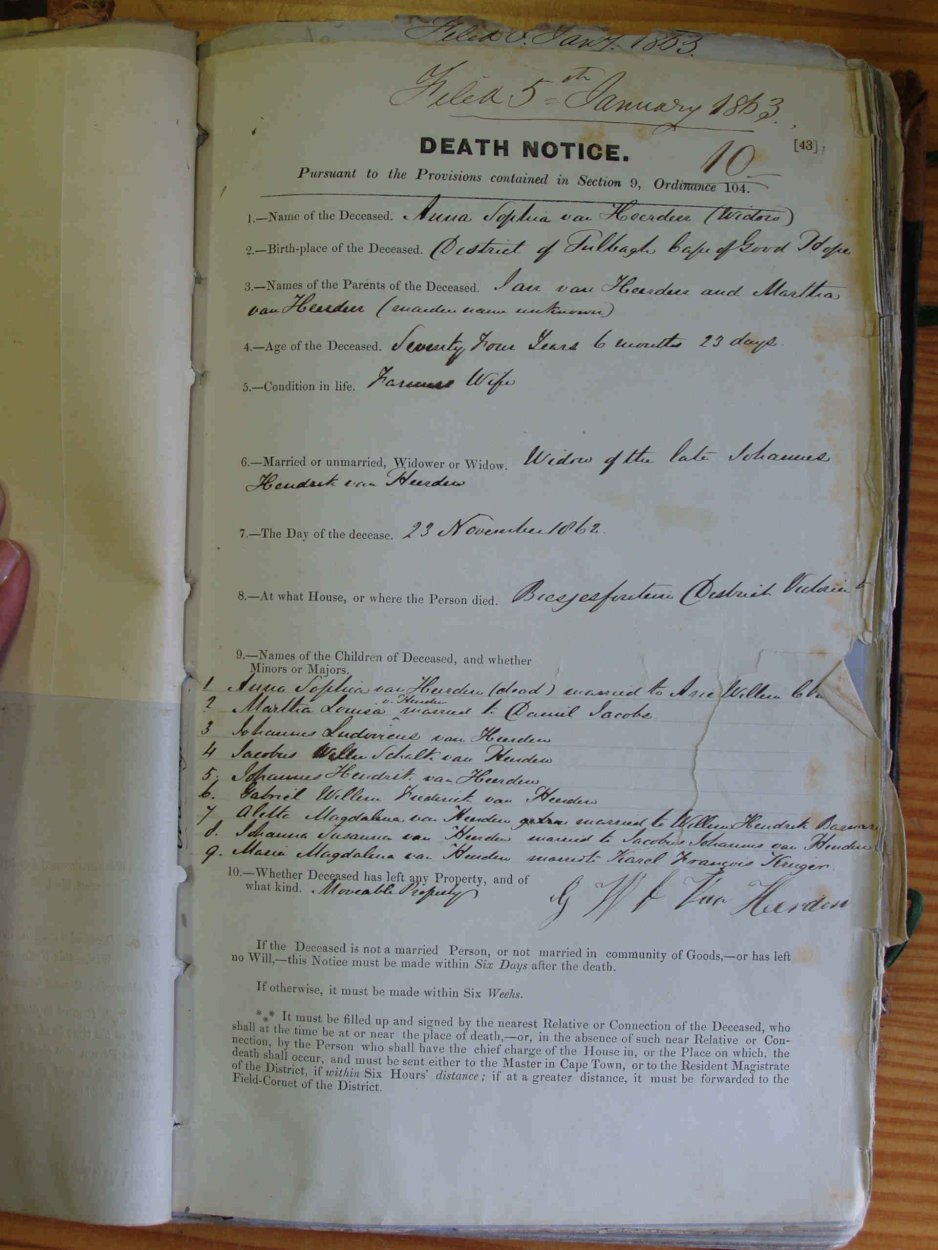 Filed 5 Jany. 1863.
Filed 5th January 1863.
DEATH NOTICE.
10
[43]
Pursuant to the Provisions contained in Section 9, Ordinance 104.
1.—Name of the Deceased. Anna Sophia van Heerden (Widow)
2.—Birth-place of the Deceased. District of Tulbagh Cape of Good Hope
3.—Names of the Parents of the Deceased. Jan van Heerden and Martha
van Heerden (maiden name unknown)
4.—Age of the Deceased. Seventy Four Years 6 months 23 days
5.—Condition in life. Farmers Wife
6.—Married or unmarried, Widower or Widow. Widow of the late Johannes
Hendrik van Heerden
7.—The Day of the decease. 23 November 1862.
8.—At what House, or where the Person died. Biesjesfontein District Victoria
9.—Names of the Children of Deceased, and whether
Minors or Majors.
1 Anna Sophia van Heerden (dead) married to Arie Willem
v. Heerden
2 Martha Louisa married to Daniel Jacobs
3 Johannes Ludovicus van Heerden
4 Jacobus Schalk van Heerden
5. Johannes Hendrik van Heerden
6. Gabriel Willem Frederik van Heerden
7 Aletta Magdalena van Heerden married to Willem Hendrik
8. Johanna Susanna van Heerden married to Jacobus Johannes van Heerden
9. Maria Magdalena van Heerden married to Karel François Kruger
10.—Whether Deceased has left any Property, and of
what kind. Moveable Property
G W F van Heerden
If the Deceased is not a married Person, or not married in community of Goods,—or has left
no Will,—this Notice must be made within Six Days after the death.
If otherwise, it must be made within Six Weeks.
*** It must be filled up and signed by the nearest Relative or Connection of the Deceased, who
shall at the time be at or near the place of death,—or, in the absence of such near Relative or Con-
nection, by the Person who shall have the chief charge of the House in, or the Place on which, the
death shall occur, and must be sent either to the Master in Cape Town, or to the Resident Magistrate
of the District, if within Six Hours' distance; if at a greater distance, it must be forwarded to the
Field-Cornet of the District.